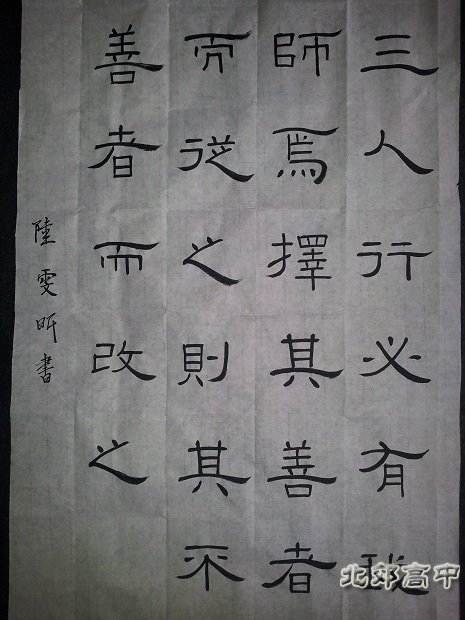 三人行必有我
師焉擇其善者
而從之則其不
善者而改之
陸雯昕書
北郊高中